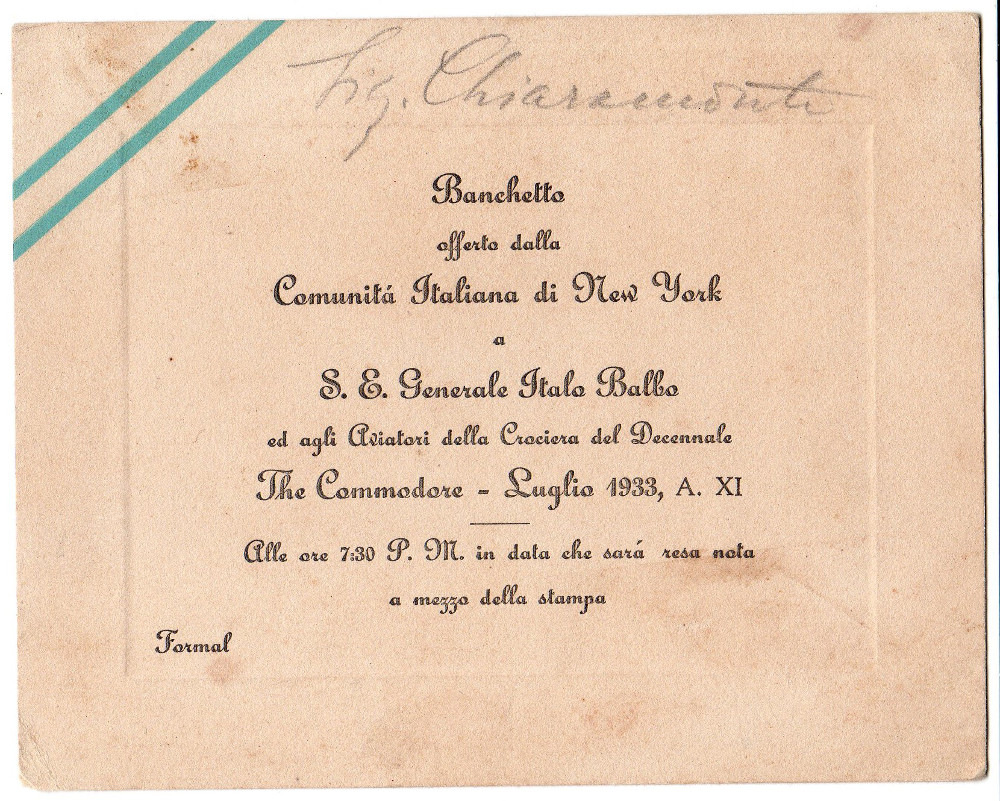 Sig. Chiaramonte
Banchetto
offerto dalla
Comunitá Italiana di New York
a
S. E. Generale Italo Balbo
ed agli Aviatori della Crociera del Decennale
The Commodore - Luglio 1933, A. XI
Alle ore 7:30 P. M. in data che sará resa nota
a mezzo della stampa
Formal